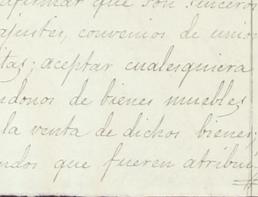 afirmar que son sinceros
ajustes, convenios de union
tas; aceptar cualesquiera
ndonos de bienes muebles
la venta de dichos bienes;
ndos que fueren atribui